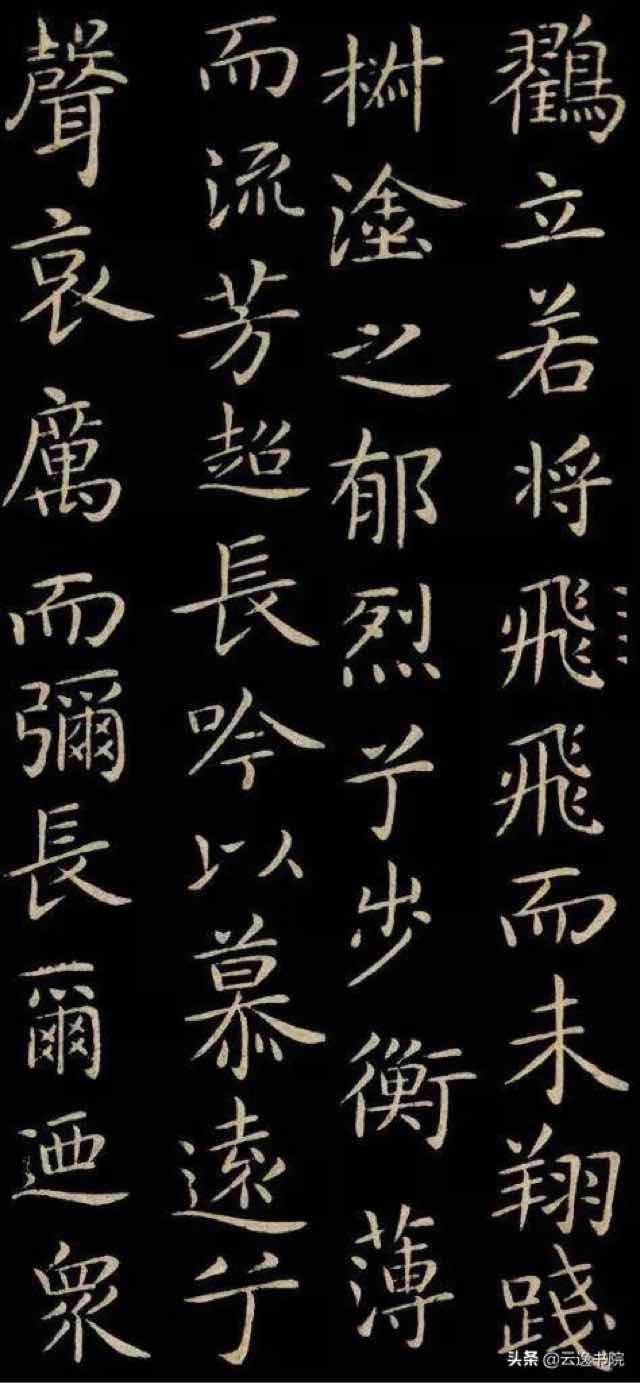 鶴立若将飛飛而未翔踐
椒塗之郁烈兮步衡薄
而流芳超長吟以慕遠兮
聲哀厲而彌長爾迺衆
头条 @云逸书院